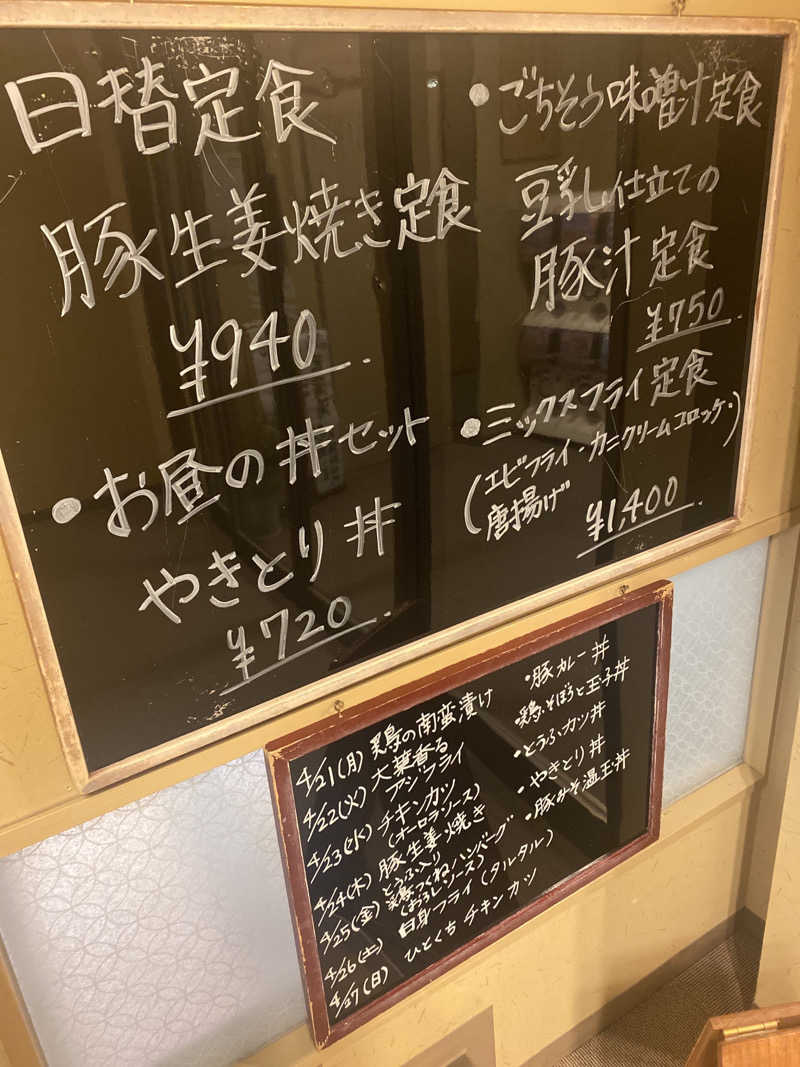 日替定食
豚生姜焼き定食
¥940.
・お昼の丼セット
やきとり丼
¥720.
・ごちそう味噌汁定食
豆乳仕立ての
豚汁定食
¥750.
・ミックスフライ定食
(エビフライ・カニクリームコロッケ・
唐揚げ)
¥1,400.
4/21(月) 鶏の南蛮漬け
4/22(火) 大葉香る
アジフライ
4/23(水) チキンカツ
(オーロラソース)
4/24(木) 豚生姜焼き
4/25(金) とうふ入り
鶏つくねハンバーグ
(おろしソース)
4/26(土) 白身フライ(タルタル)
4/27(日) ひとくちチキンカツ
・豚カレー丼
・鶏そぼろと玉子丼
・とうふカツ丼
・やきとり丼
・豚みそ温玉丼